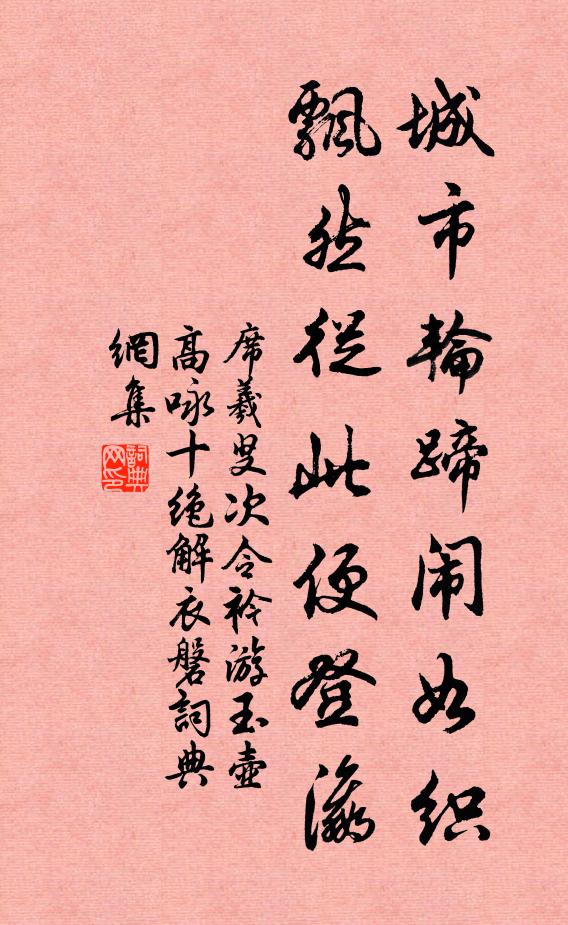 城市輪蹄闹如织
飘然從此便登瀛
席羲叟次令衿游玉壺
高咏十绝解衣磐詞典
網集
詞典
网印